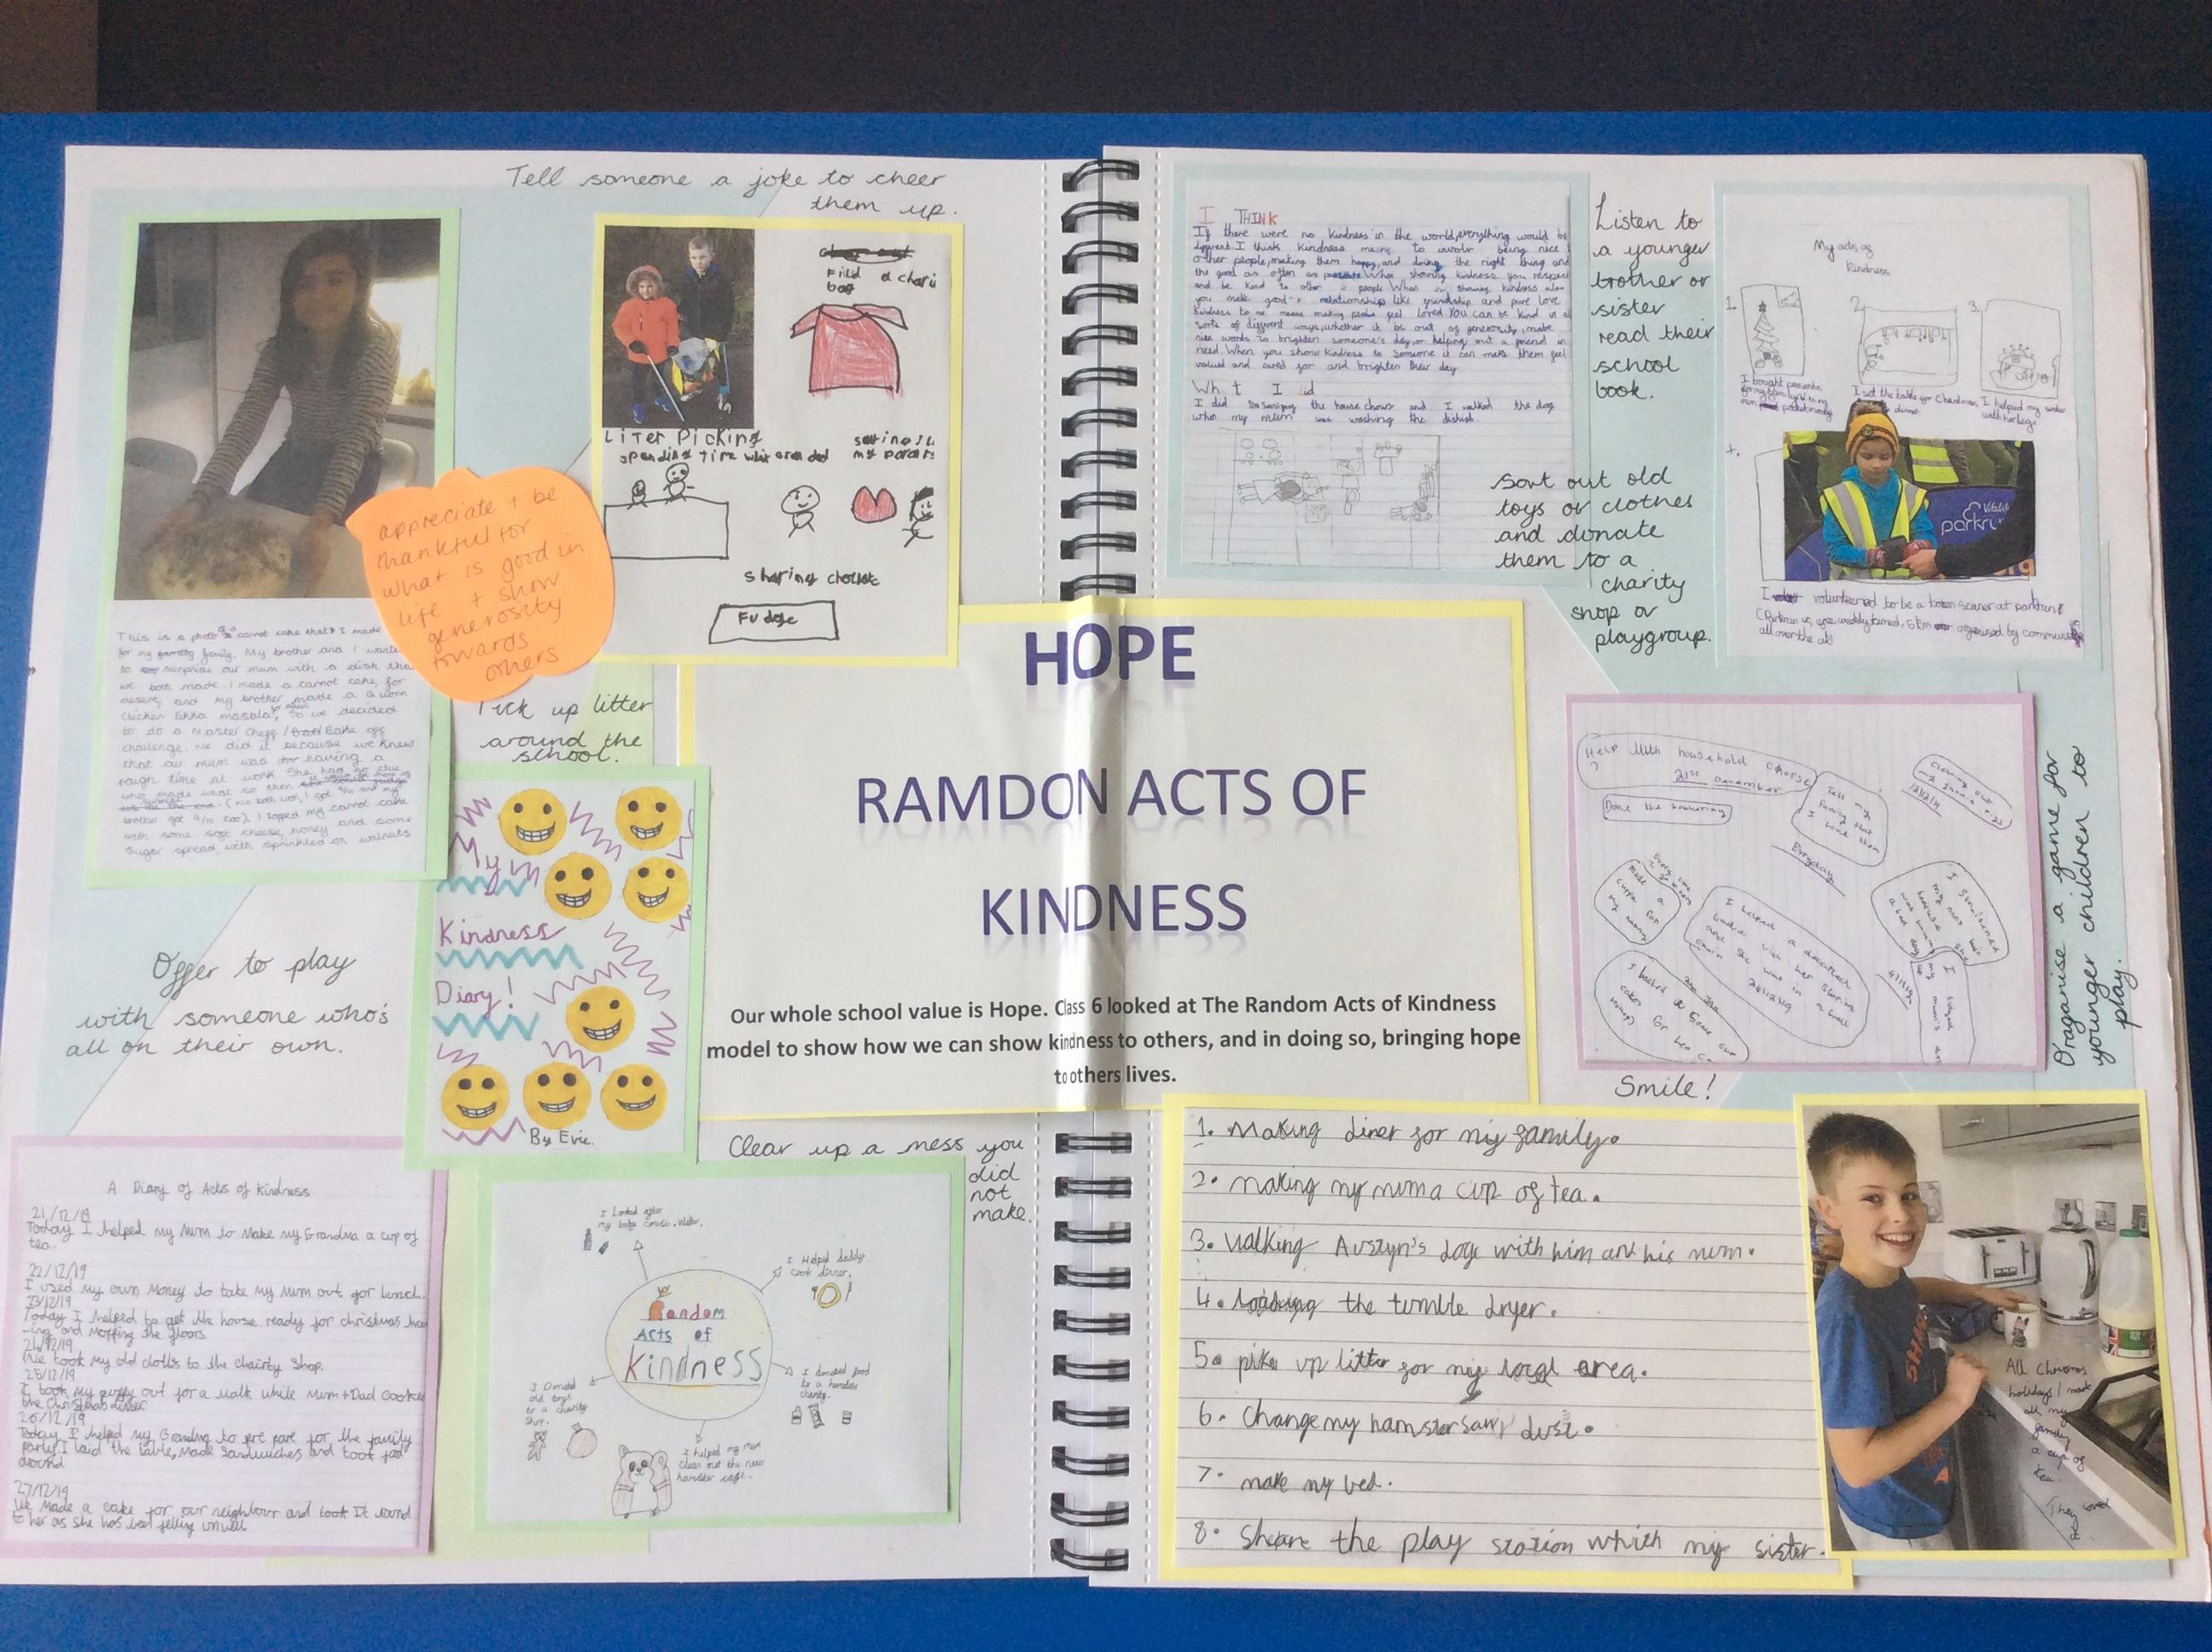 Tell someone a joke to cheer
them up.
Fild a chari
bag
Liter Picking
spending time
my parars
sharing
Fudge
appreciate + be
thankful for
what is good in
life + show
generosity
towards
others
This is a photo of a carrot cake that I made
for my family. My brother and I
to surprise our mum with a dish tha
we both made. I made a carrot cake, for
desert, and my brother made a Quorn
Chicken tikka masala, So we decided
to do a Master Cheff / Bake off
challenge. We did it because we knew
that our mum was having a
rough time at work. She had no clue
who made what so then
(We both won, I got 9/10 and my
brother got 9/10 too). I topped my carrot cake
with some soft cheese, honey and some
sugar spread, with sprinkled on walnuts
Pick up litter
around the
school.
My
Kindness
Diary!
By Evie.
Offer to play
with someone who's
all on their own.
A Diary of Acts of Kindness
21/12/19
Today I helped my Mum to Make my Grandma a cup of
tea.
22/12/19
I used my own Money to take my Mum out for lunch.
23/12/19
Today I helped to get the house ready for christmas hoo
-ing and Mopping the floors.
24/12/19
We took my old clothes to the chairty Shop.
25/12/19
I took my puppy out for a walk while Mum+Dad Cooked
the Christmas dinner.
26/12/19
Today I helped my Grandma to pre pare for the family
party. I laid the table, Made Sandwiches and took food
around
27/12/19
We Made a cake for our neighbour and took It round
to her as she has been felling unwell
Clear up a mess you
did
not
make.
I Looked after
I Helped daddy
cook dinner.
Random
Acts of
Kindness
I Donated
old toys
to a charity
shop.
I donated food
to a homeless
charity.
I helped my mum
clean out the new
hamster cage.
HOPE
RAMDON ACTS OF
KINDNESS
Our whole school value is Hope. Class 6 looked at The Random Acts of Kindness
model to show how we can show kindness to others, and in doing so, bringing hope
to others lives.
I THINK
If there were no kindness in the world, everything would be
different. I think kindness means to involve being nice
other people, making them happy, and doing the right thing and
the good as often as possible. When showing kindness you respect
and be kind to other people. When showing kindness also
you make good relationship like friendship and pure love
Kindness to me means making people feel loved. You can be kind in a
sorts of different ways, whether it be out of generosity, make
nice words to brighten someone's day, or helping out a friend in
need. When you show kindness to someone it can make them feel
valued and cared for and brighten their day.
What I did
I did the house chours and I walked the dog
when my mum was washing the dishish.
Listen to
a younger
brother or
sister
read their
school
book.
Sort out old
toys or clothes
and donate
them to a
charity
shop or
playgroup.
My acts of
kindness
1.
2.
3.
I bought presents
for my family using
my own pocket money
I set the table for Christmas
dinner
I helped my sister
with her lego
4.
Vitality
parkru
I volunteered to be a token scaner at parkrun
Help with household chores
21st December
Done the hoovering
Tell my
family that
I love them
Everyday
I helped a
and she was in a
24/12/19
I baked some cup
cakes for
Smile!
Oraganise a game for
younger children to
play.
1. Making diner for my family.
2. making my mum a cup of tea.
3. walking Austyn's dogs with him and his mum.
4. loading the tumble dryer.
5. pike up litter for my local area.
6. Change my hamster saw dust.
7. make my bed.
8. Share the play station which my sister.
All Christmas
holidays I made
all my
family
a cup of
tea.
They loved